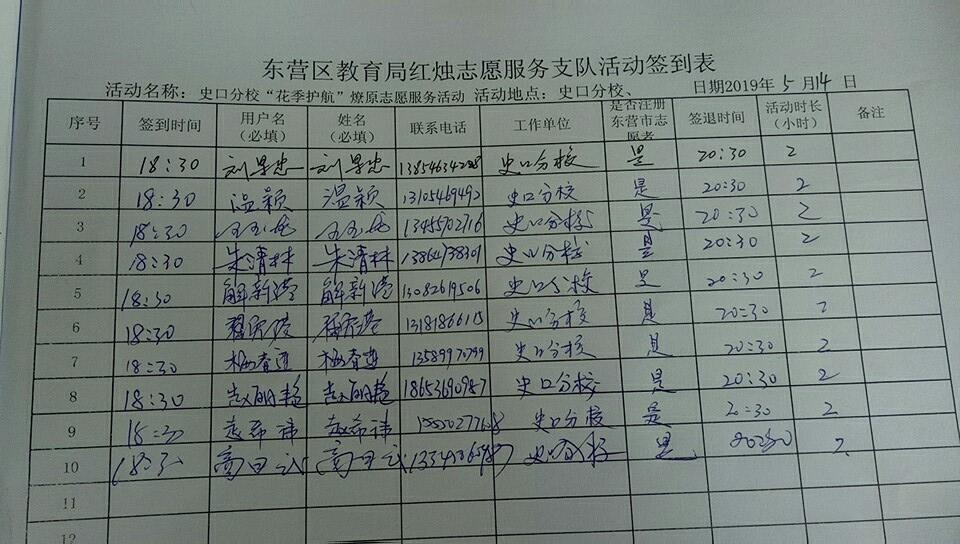 东营区教育局红烛志愿服务支队活动签到表
活动名称： 史口分校“花季护航”燎原志愿服务活动 活动地点： 史口分校、 日期2019年 5 月14 日
序号 签到时间 用户名（必填） 姓名（必填） 联系电话 工作单位 是否注册东营市志愿者 签退时间 活动时长（小时） 备注
1 18:30 史口分校 是 20:30 2
2 18:30 温颖 温颖 13105469492 史口分校 是 20:30 2
3 18:30 13455702716 史口分校 是 20:30 2
4 18:30 朱清林 朱清林 史口分校 是 20:30 2
5 18:30 解新港 解新港 13082619506 史口分校 是 20:30 2
6 18:30 史口分校 是 20:30 2
7 18:30 13589970799 史口分校 是 20:30 2
8 18:30 赵丽艳 赵丽艳 18653690987 史口分校 是 20:30 2
9 18:30 赵希祎 赵希祎 史口分校 是 20:30 2
10 18:30 史口分校 是 20:30 2
11
12